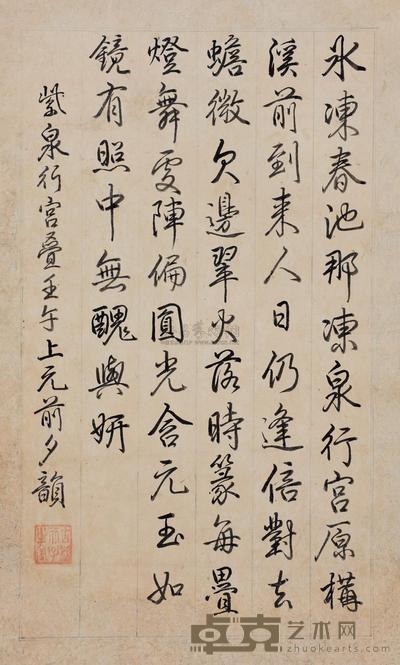 氷凍春池那凍泉行宮原構
溪前到来人日仍逢倍對去
蟾微欠邊翠火落時篆每疊
燈舞處陣偏圓光含元玉如
鏡有照中無醜與妍
紫泉行宮疊壬午上元前夕韻
卓克艺术网
www.zhuokearts.com